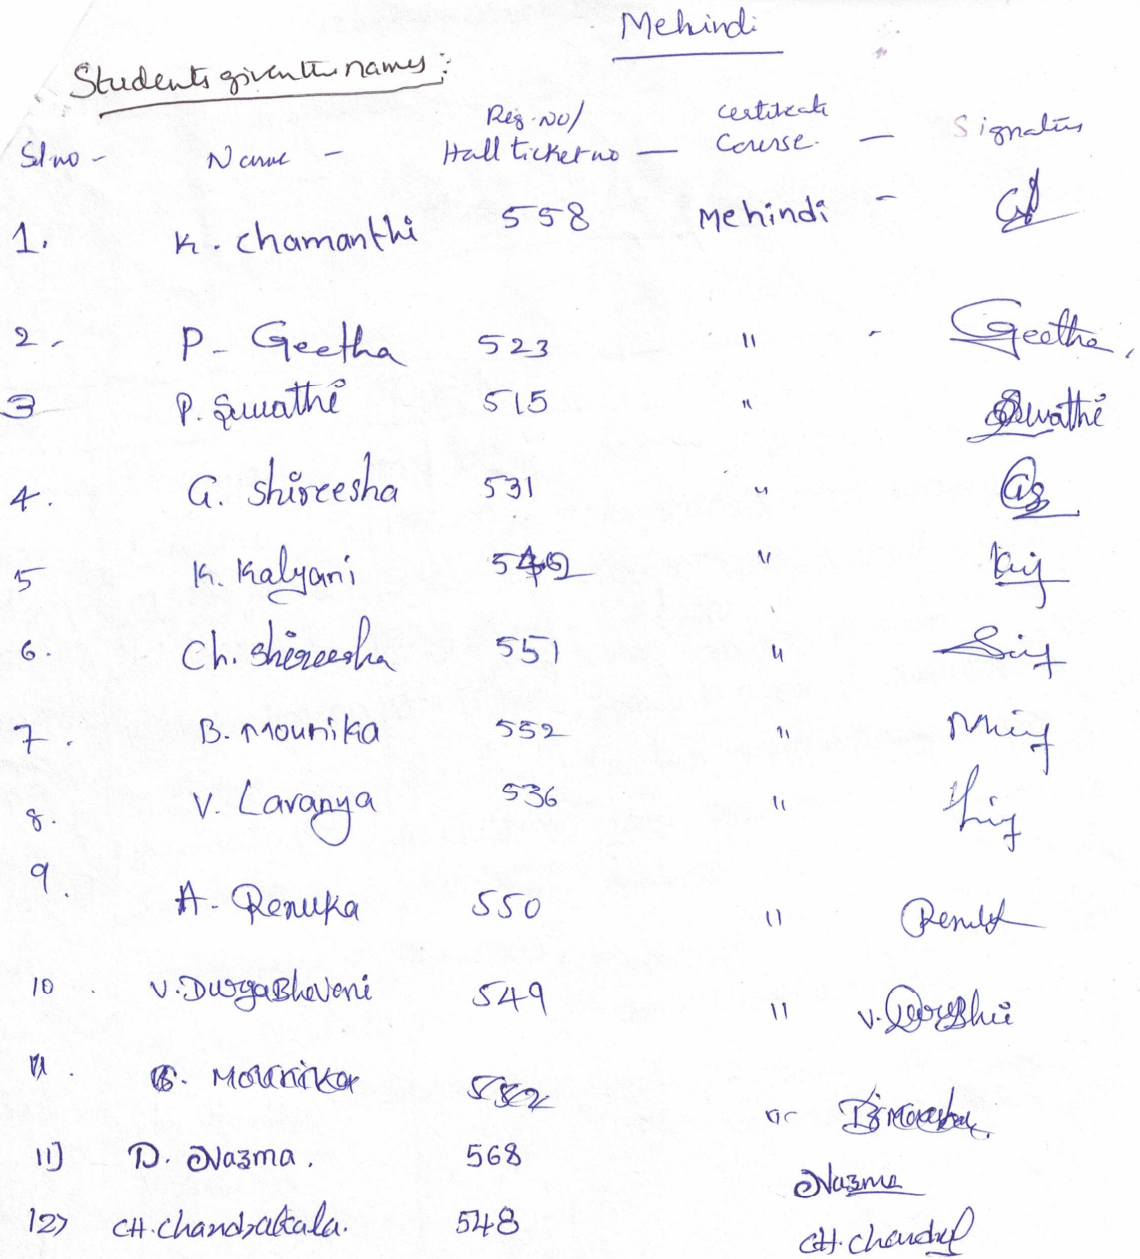 Mehindi
Students given the names :
Sl no - Name - Reg. No/ Hall ticket no — certificate Course. — Signature
1. K. chamanthi 558 Mehindi -
2 - P- Geetha 523 " - Geetha,
3 P. Swathi 515 " Swathi
4. G. shireesha 531 "
5 K. Kalyani "
6. Ch. shireesha 551 "
7. B. Mounika 552 "
8. V. Lavanya 536 "
9. A. Renuka 550 "
10. V. DurgaBhavani 549 "
11. B. Mounika 552 "
11) D. Nazma. 568 Nazma
12) CH. Chandrakala. 548